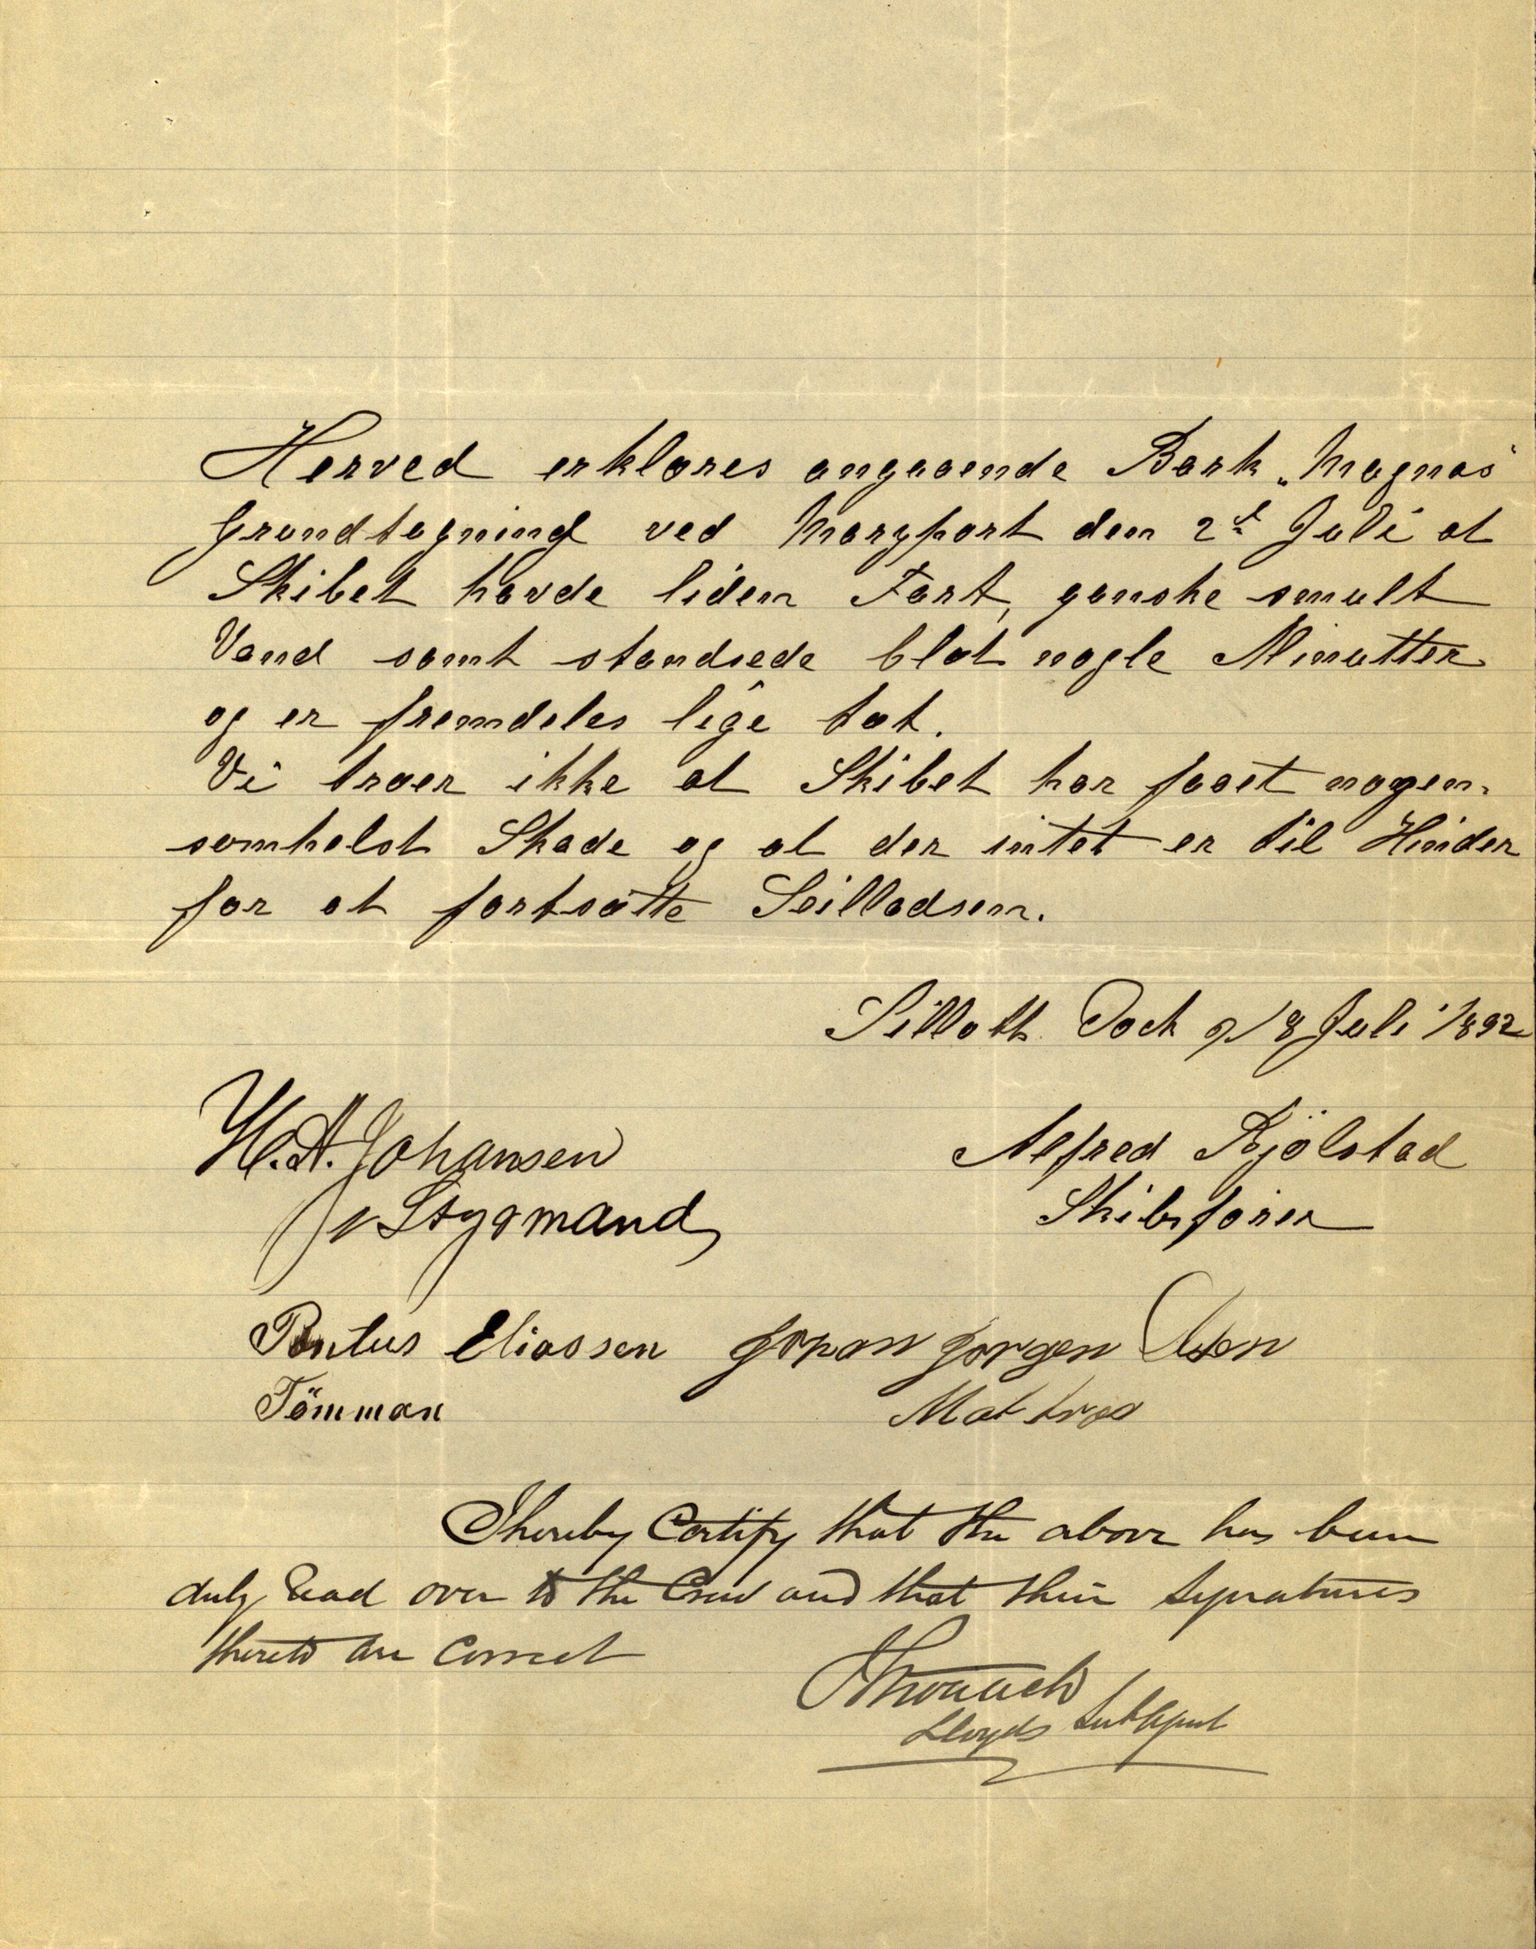 Herved erklæres angaaende Bark "Magnas"
Grundtagning ved Maryport den 2d Juli at
Skibet havde liden Fart, ganske smult
Vand samt standsede blot nogle Minutter
og er fremdeles lige tæt.
Vi troer ikke at Skibet har faaet nogen-
somhelst Skade og at der intet er til Hinder
for at fortsætte Seilladsen.
Silloth Dock 9/18 Juli 1892
H. A. Johansen
Styrmand
Alfred Kjölstad
Skibsfører
Pontus Eliassen
Tömman
Johan Jorgen Olsen
Matros
I hereby Certify that the above has been
duly Read over to the Crew and that their signatures
thereto are Correct
Lloyds SubAgent